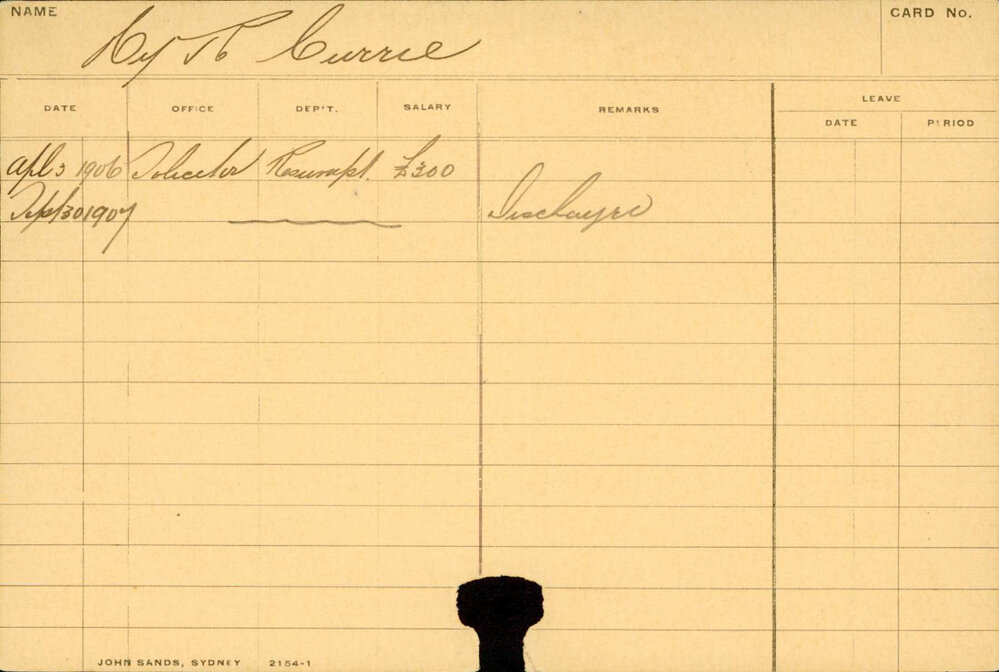 NAME
CARD No.
Hy R Currie
DATE OFFICE DEP'T. SALARY REMARKS LEAVE
DATE PERIOD
Apl 3 1906 Solicitor Resumpt. £300
Sept 30 1907 Discharge
JOHN SANDS, SYDNEY 2154-1